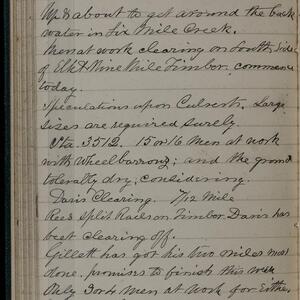 Up & about to get around the back
water in Six Mile Creek.
Men at work clearing on South Side
of Elk & Nine Mile Timber commence
today.
Speculations upon Culvert. Large
sizes are required surely.
Sta. 3512. 15 or 16 Men at work
with wheelbarrows; and the ground
tolerably dry, considering.
Davis Clearing. 7/12 Mile
Rees split Rails on Timber Davis has
beet clearing off.
Gillett has got his two miles most
done. promises to finish this week
Only 3 or 4 Men at work for Esther